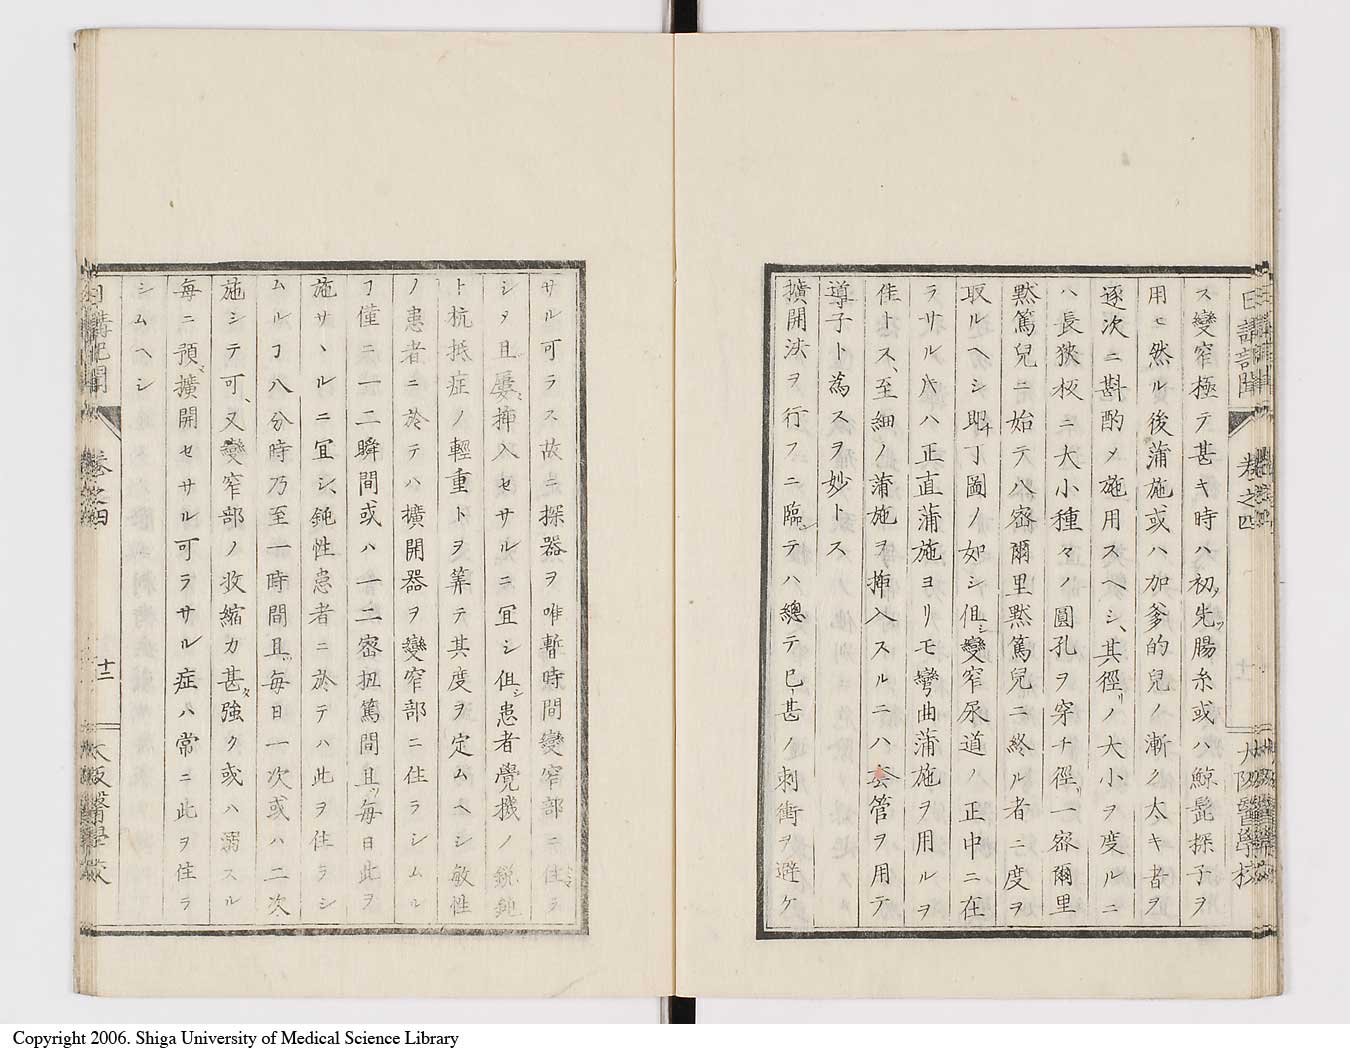 日講記聞 卷之四 十 大阪醫學校
ス變窄極テ甚キ時ハ初メ先ツ腸糸或ハ鯨髭探子ヲ
用ヒ然ル後蒲施或ハ加爹的兒ノ漸ク太キ者ヲ
逐次ニ斟酌メ施用スヘシ、其徑リノ大小ヲ度ルニ
ハ長狹板ニ大小種々ノ圓孔ヲ穿チ徑リ一密爾里
黙篤兒ニ始テ八密爾里黙篤兒ニ終ル者ニ度ヲ
取ルヘシ即チ丁圖ノ如シ但シ變窄尿道ノ正中ニ在
ラサル片ハ正直蒲施ヨリモ彎曲蒲施ヲ用ルヲ
佳トス、至細ノ蒲施ヲ揷入スルニハ套管ヲ用テ
導子ト為スヲ妙トス
擴開法ヲ行フニ臨シテハ總テ已甚ノ刺衝ヲ避ケ
サル可ラス故ニ探器ヲ唯暫時間變窄部ニ住ラ
シタ且屢〻揷入セサルニ冝シ但シ患者覺機ノ銳鈍
ト抗抵症ノ輕重トヲ筭テ其度ヲ定ムヘシ敏性
ノ患者ニ於テハ擴開器ヲ變窄部ニ住ラシムル
ヿ僅ニ一二瞬間或ハ一二密扭篤間且ツ毎日此ヲ
施サヽルニ冝シ、鈍性患者ニ於テハ此ヲ住ラシ
ムルヿ八分時乃至一時間且ツ毎日一次或ハ二次
施シテ可、又變窄部ノ收縮力甚タ強ク或ハ溺スル
毎ニ預メ擴開セサル可ラサル症ハ常ニ此ヲ住ラ
シムヘシ
日講記聞 卷之四 十二 大阪醫學校
Copyright 2006. Shiga University of Medical Science Library